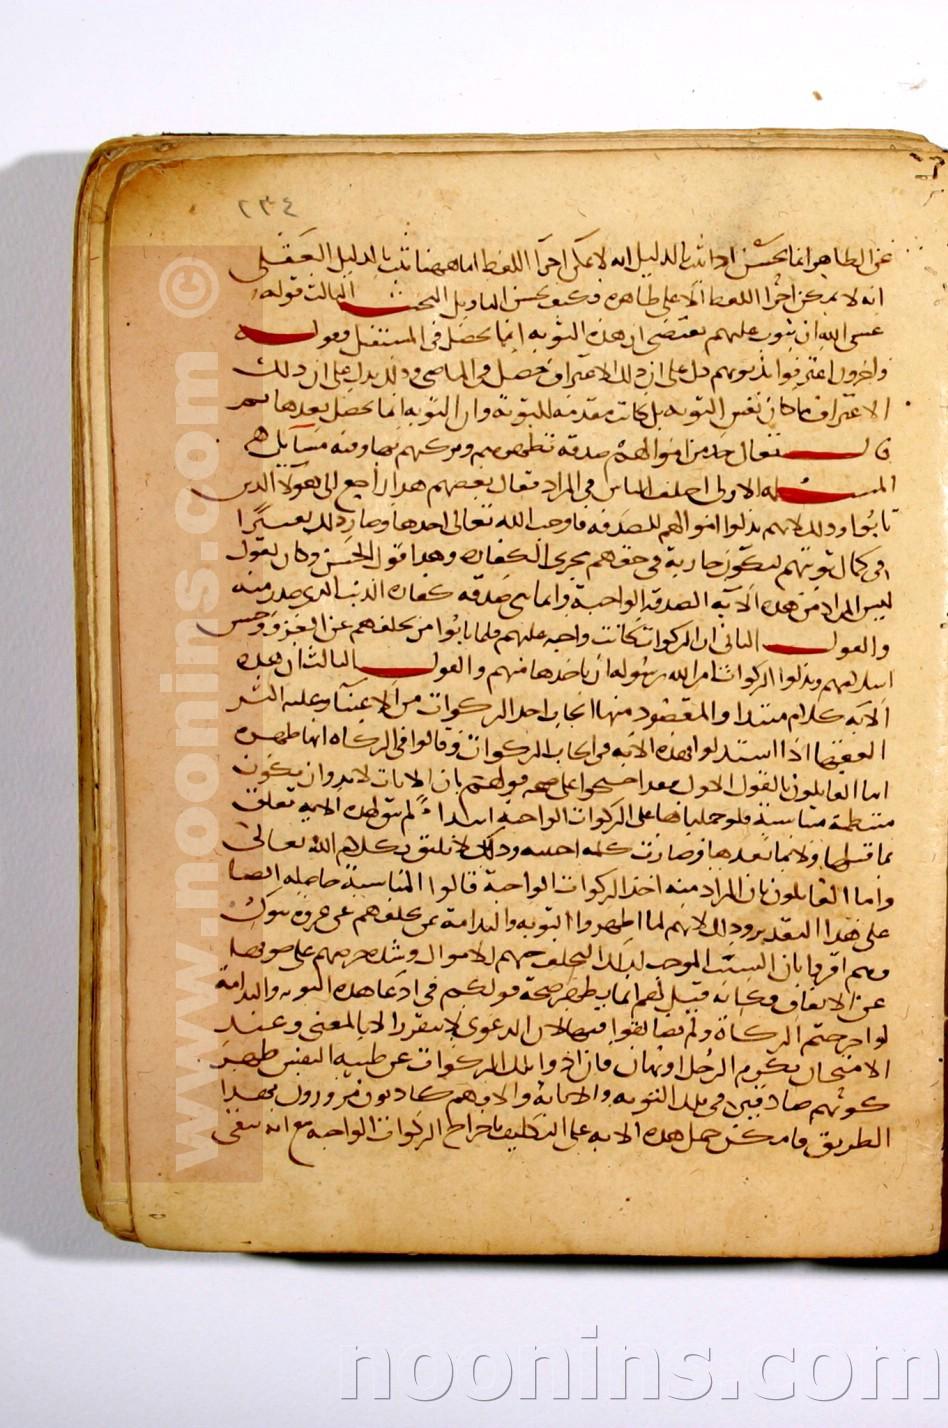 ٢٣٤
عن الظاهر انما يحسن اذا ثبت بالدليل انه لا يمكن اجرا اللفظ اما ههنا ثبت بالدليل العقلي
انه لا يمكن اجرا اللفظ الا على ظاهره فكيف يحسن التاويل البحث الثالث قوله
عسى الله ان يتوب عليهم يقتضى ان هذه التوبه انما يحصل في المستقبل وقوله
واخرون اعترفوا بذنوبهم دل على ان ذلك الاعتراف حصل في الماضى وذلك يدل على ان ذلك
الاعتراف ما كان نفس التوبه بل كانت مقدمه للتوبة وان التوبه انما يحصل بعدها ثم
قال تعالى خذ من اموالهم صدقة تطهرهم وتزكيهم بها وفيه مسايل
المسئله الاولى اختلف الناس في المراد فقال بعضهم هذا راجع الى هولآ الذين
تابوا وذلك لانهم بذلوا اموالهم للصدقه فاوجب الله تعالى اخذها وصار ذلك معتبرا
في كمال توبتهم لتكون جارية في حقهم مجرى الكفاره وهذا قول الحسن وكان يقول
ليس المراد من هذه الآيه الصدقة الواجبة وانما هي صدقه كفاره الذنب الذى صدر منه
والقول الثانى ان الزكوات كانت واجبه عليهم فلما تابوا من تخلفهم عن الغزو وحسن
اسلامهم وبذلوا الزكوات امر الله رسوله ان ياخذها منهم والقول الثالث ان هذه
الآيه كلام مبتدا والمقصود منها ايجاب اخذ الزكوات من الاغنيآ وعليه اكثر
الفقها اذا استدلوا بهذه الآيه في ايجاب الزكوات وقالوا في الزكاه انها طهره
اما القايلون بالقول الاول فقد احتجوا على صحه قولهم بان الايات لابد وان يكون
منتظمة متناسبة فلو حملناها على الزكوات الواجبه ابتداءً لم يبق لهذه الايه تعلق
بما قبلها ولا بما بعدها وصارت كلمه اجنبيه وذلك لا يليق بكلام الله تعالى
واما القايلون بان المراد منه اخذ الزكوات الواجبة قالوا المناسبة حاصله ايضا
على هذا التقدير وذلك لانهم لما اظهروا التوبه والندامة عن تخلفهم عن غزوه تبوك
وهم اقروا بان السبب الموجب لذلك التخلف حبهم للاموال وشده حرصهم على صونها
عن الانفاق فكانه قيل لهم انما يظهر صحة قولكم في ادعا هذه التوبه والندامة
لو اخرجتم الزكاة ولم تضايقوا فيها لان الدعوى لا يتقرر الا بالمعنى وعند
الامتحان يكرم الرجل او يهان فان ادوا تلك الزكوات عن طيبه النفس ظهر
كونهم صادقين في تلك التوبه والانابة والا فهم كاذبون مزورون بهذا
الطريق فامكن حمل هذه الايه على التكليف باخراج الزكوات الواجبه مع انه يبقى
www.noonins.com ©
noonins.com